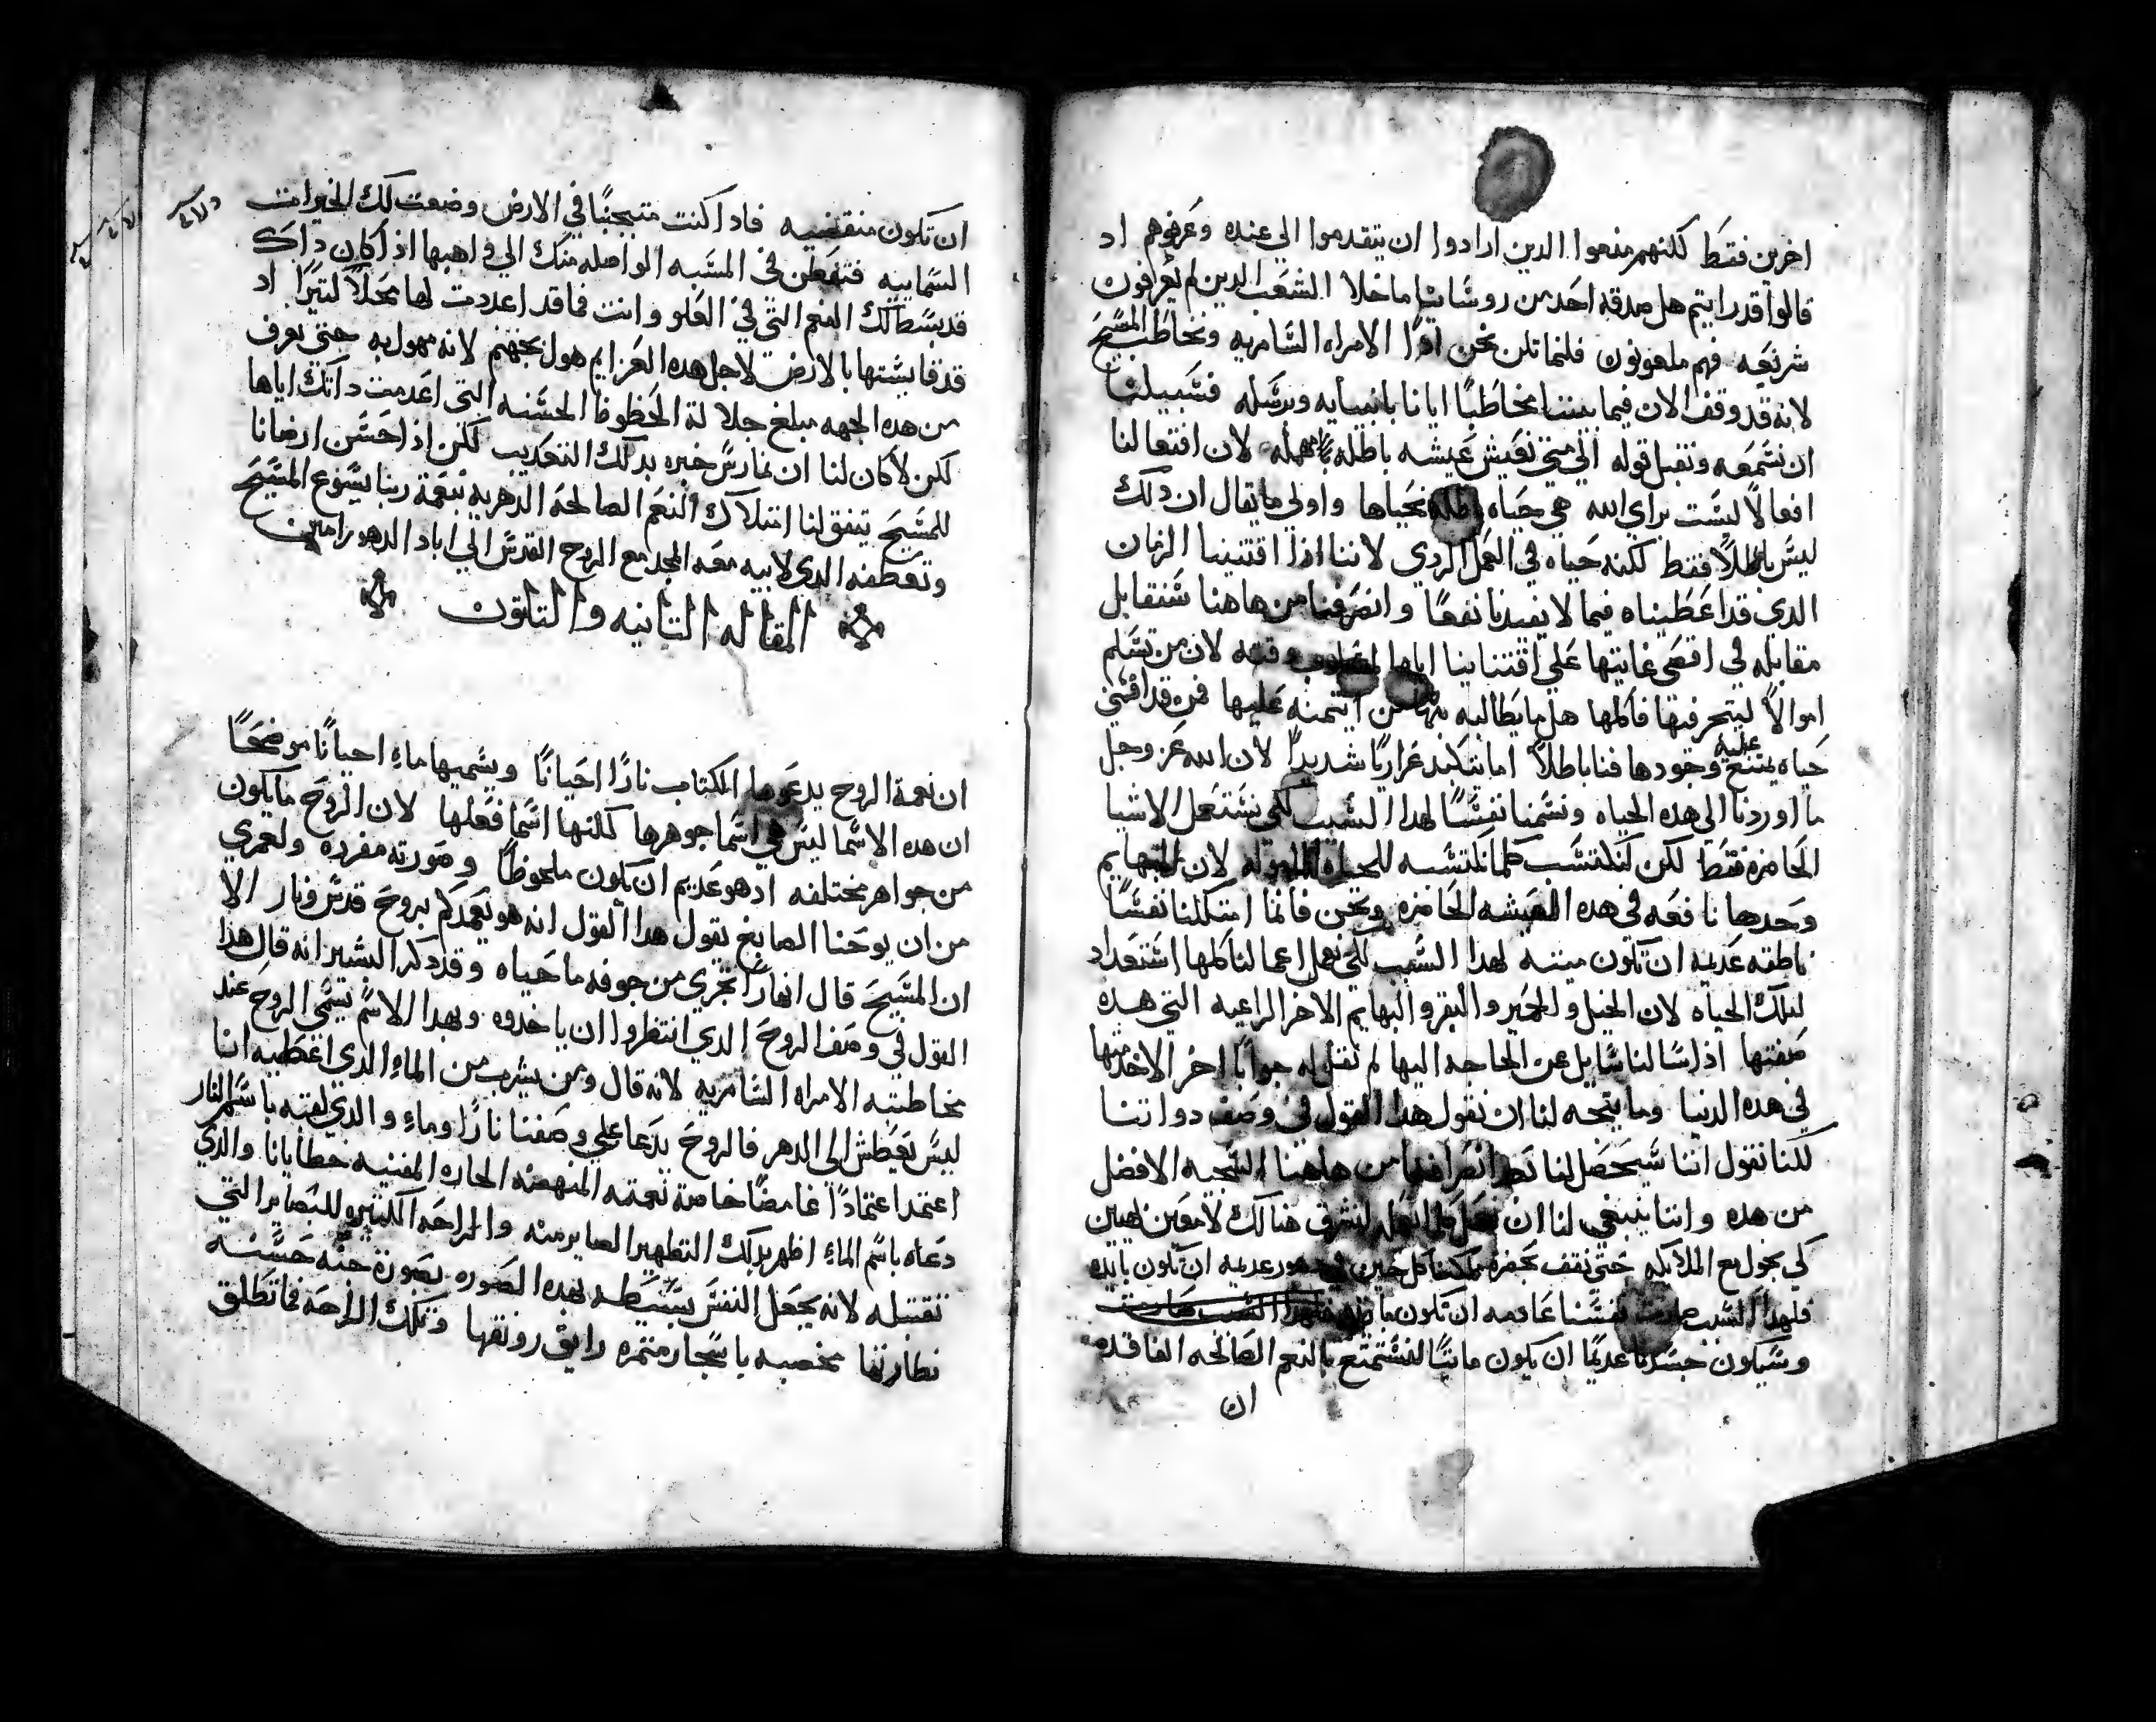 اخرين فقط لكنهم منعوا الدين ارادوا ان يتقدموا الي عنده وعرفوهم اد
قالوا قد رايتم هل صدقه احد من روسَاينا ما خلا الشعَب الدين لم يعَرفون
شريعَه فهم ملعونون فلنماتلن نحن ادًا الامراه السَامريه ونخاطب المسَيحَ
لانه قد وقف الان فيما بيننا مخاطبًا ايانا بانبيايه وبرسَله فسَبيلنا
ان نسَمعَه ونقبل قوله الي متي نعَيش عَيشه باطله مهمله لان افتعالنا
افعالاً ليسَت براي الله هي حيَاه باطله نحَياها واولي ما يقال ان دلك
ليسَ باطلاً فقط لكنه حَياه في العَمل الردي لاننا ادا اقتنينا الزمان
الدي قد اعَطيناه فيما لا يفيدنا نفعًا وانصَرفنا من هاهنا سَنقابل
مقابله في اقصَي غايتها عَلي اقتناينا اياها وقته لان من تسَلم
اموالاً ليتجر فيها فاكلها هل ما يطالبه بها من ايتمنه عَليها فمن قد افنَي
حَياه يمتنع عليه وجودها فنا باطلاً اما يتكبد عَداريًا شديدًا لان الله عَز وجل
ما اوردنا الي هده الحياه ونسَمنا نفسًا لهدا السَبب لكي نسَتعَمل الاشيا
الحَاضره فقط لكن لنكتسَب كلما نكتسَبه للحياه لان البهايم
وحَدها نافعَه في هده العَيشه الحَاضره ونحن فانما امتلكنا نفسًا
ناطقه عَديمه ان تكون ميته لهدا السَبب لكي نعَمل اعمالنا كلها اسَتعَداد
لتلك الحياه لان الخيل والحمير والبقر والبهايم الاخر الراعيه التي هده
صَفتها اذ اسَالنا سَايل عن الحاجه اليها لم نقل له جوابًا اخر الا خدمتها
في هده الدنيا وما يتجه لنا ان نقول هدا القول في وصَف دواتنا
لكنا نقول اننا سَيحَصَل لنا بَعد انصَرافنا من هاهنا السَجيه الافضل
من هده واننا ينبغي لنا ان نعَمل كل لنشرق هنالك لامعَين لهيين
لكي نجول مع الملايكه حَتي نقف بحَضره ملكنا كل حَين في دهور عديمه ان تكون بايده
فلهدا السَبب صارت نفسَنا عَادمه ان تكون مايته
وسَيكون جسَدنا عديمًا ان يكون مايتًا لنسَتمتع بالنعم الصَالحه الفاقده
ان
ان تكون منقضيه فادا كنت متبحثًا في الارض وضعت لك الخيرامت
السَماييه فتفطن في المسَبه الواصله منك الي واهبها اذا كان داك
قد بسَط لك النعم التي في العَلو وانت فما قد اعددت لها محَلاً كبيَرًا اد
قد قايسَتها بالارض لاجل هده العَزايم هول بجهنم لانه مهول به حتي نعرف
من هده الجهه مبلغ جلالة الحَظوظ الحسَنه التي اعَدمت داتك اياها
لكن لا كان لنا ان نمارسَ خبره بدلك التعَديب لكن اذ احَسَن ارضانا
للمسَيحَ يتفق لنا امتلاك النعَم الصالحَه الدهريه بنعَمة ربنا يسَوع المسَيَحَ
وتعَطفه الدي لابيه معَه المجد مع الروح القدسَ الي اباد الدهور امين
المقاله التانيه والتلتون
ان نعمة الروح يدعَوها الكتاب نارًا احَيانًا ويسَميها ماءِ احيانًا موضحَا
ان هده الاسَما ليسَ هي اسَما جوهرها لكنها اسَما فعَلها لان الروحَ ما يكون
من جواهر مختلفه اد هو عَديم ان يكون ملحوظًا وصَورته مفرده ولعمري
من ان يوحَنا الصابغ يقول هدا القول انه هو يعَمدكم بروحَ قدسَ ونار الا
ان المسَيحَ قال انهارًا تجري من جوفه ما حَياه وقد دكر البشير انه قال هدا
القول في وصَف الروحَ الدي انتظروا ان ياخدوه وبهدا الاسَم تسَمي الروحَ عند
مخاطبته الامراه السَامريه لانه قال ومن يشرب من الماءِ الدي اعَطيه انا
ليسَ يعَطش الي الدهر فالروحَ يدَعا علي وصَفنا نارًا وماءِ والدي لقبه باسَم النار
اعتمد اعتمادًا غامضًا خاصة نعمته المنهضه الحاره المفنيه خطايانا والدي
دعَاه باسَم الماءِ اظهر بدلك التطهير الصاير منه والراحَه الكتيره للبَصاير التي
تقتبله لانه يجعَل النفسَ بسَيط بهده الصَوره بصَورة جنَه حَسَنه
نظارتها مخصبه باسَجار متمره رايق رونقها وتلك الراحَه فما تطلق